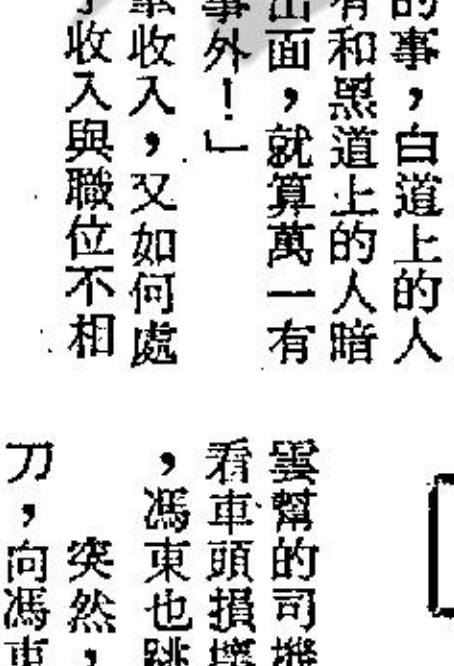 的事，白道上的人
有和黑道上的人暗
出面，就算萬一有
事外！」
收入，又如何處
收入與職位不相
雲幫的司機
看車頭損壞
，馮東也跳
突然，
刀，向馮東